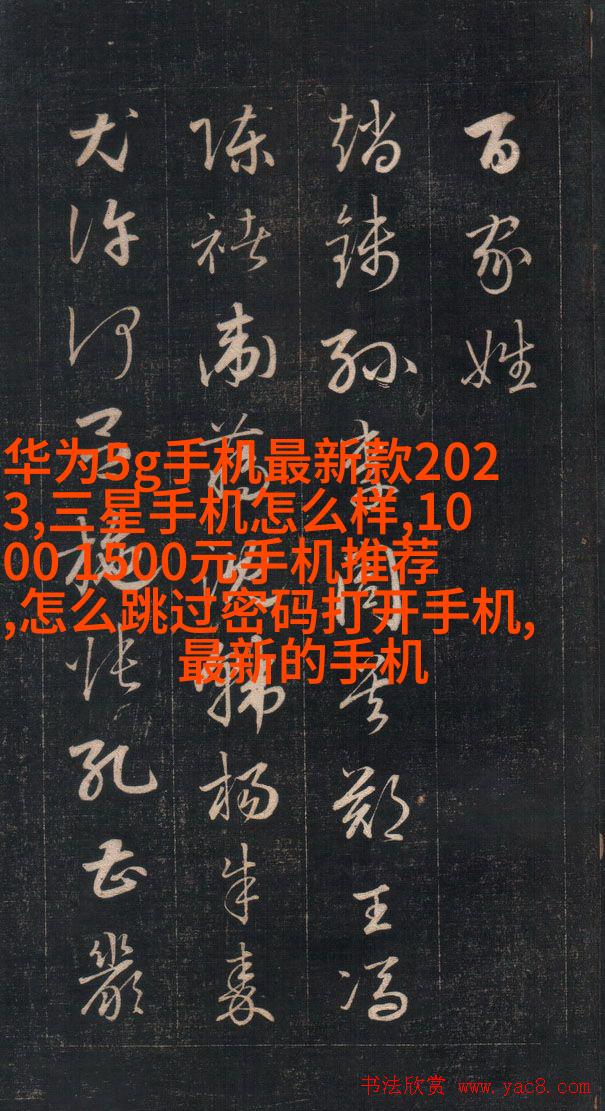 百家姓
趙錢孫李周吳鄭王馮
陳褚衛蔣沈韓楊朱秦
尤許何呂施張孔曹嚴
华为5g手机最新款202
3,三星手机怎么样,10
00 1500元手机推荐
,怎么跳过密码打开手机,
最新的手机
书法欣赏 www.yac8.com